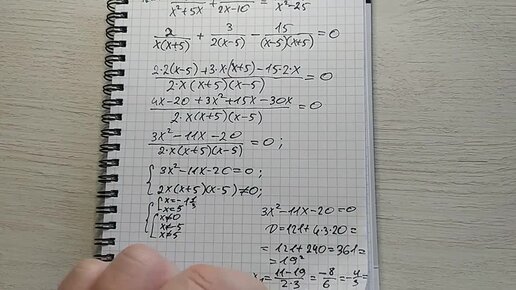 x²+5x + 2x-10 = x²-25
2/(x(x+5)) + 3/(2(x-5)) - 15/((x-5)(x+5)) = 0
(2·2(x-5)+3·x·(x+5)-15·2·x)/(2·x(x+5)(x-5)) = 0
(4x-20+3x²+15x-30x)/(2·x(x+5)(x-5)) = 0
(3x²-11x-20)/(2·x(x+5)(x-5)) = 0;
{ 3x²-11x-20=0;
2x(x+5)(x-5)≠0;
x=-1 1/3
x=5
x≠0
x≠-5
x≠5
3x²-11x-20=0
D=121+4·3·20=
=121+240=361=
=19²
x₁=(11-19)/(2·3)=-8/6=-4/3=